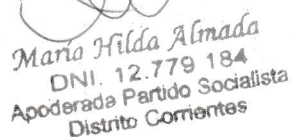 María Hilda Almada
DNI. 12.779 184
Apoderada Partido Socialista
Distrito Corrientes